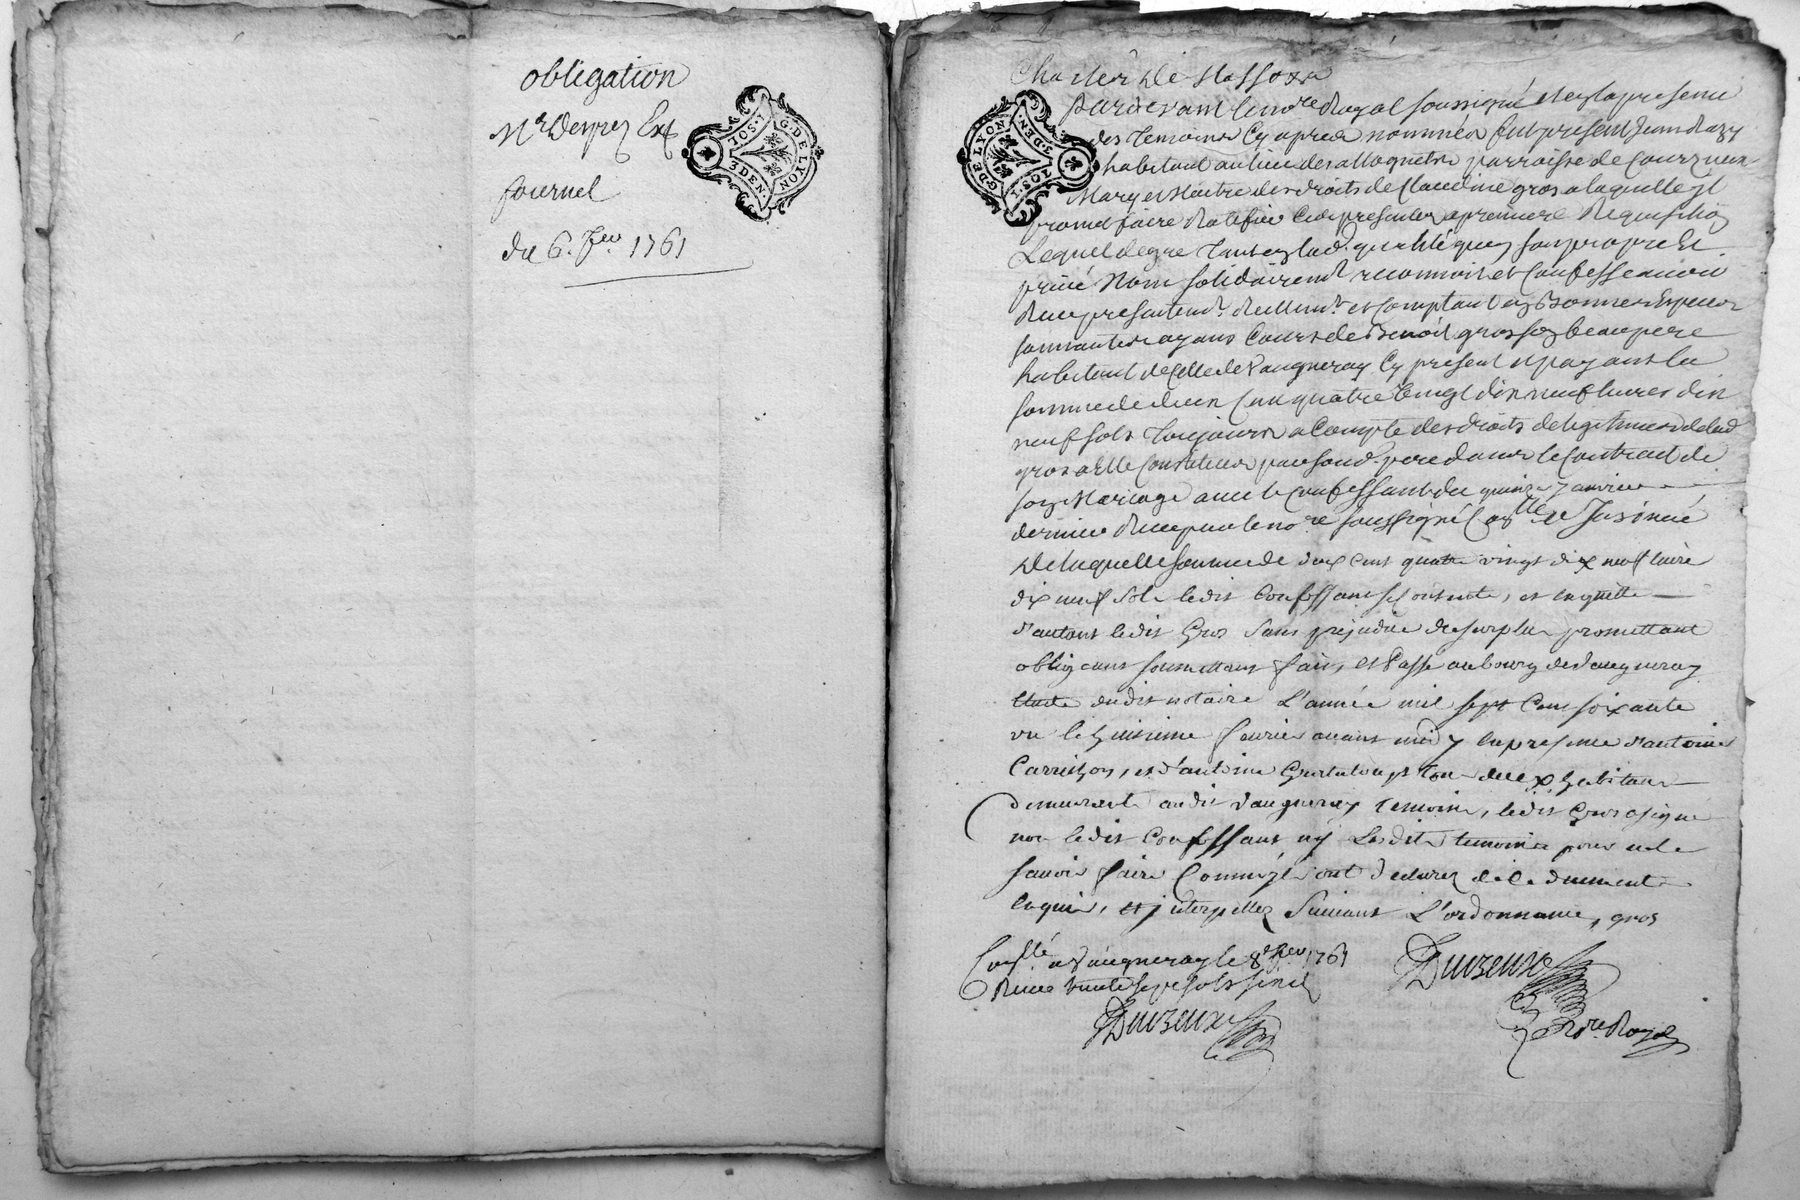 obligation
Mr Deyrez Ext
fournel
du 6. Fev 1761
G. DE LYON
1. SOL
3 DEN
G DE LYON
1. SOL
3. DEN.
pardevant le no.re Royal soussigné et en la presence
des temoins cy apres nommés fut present Jean Razy
habitant au lieu des allognets parroisse de Courzieux
Mary et Maitre des droits de Claudine gros a laquelle il
promet faire Ratifier ces presentes a premiere Requisition
Lequel de gré tant en lad. qualité qu'en son propre et
privé Nom solidairem.t reconnoit et confesse avoir
Receu presentem.t Reellem.t et comptant en bonnes especes
sonnantes ayans Cours de Benoit gros son beaupere
habitant de celle de Vaugneray Cy present et payant la
somme de deux Cent quatre vingt dix neuf livres dix
neuf sols toujours a Compte des droits de legitimes de lad
gros a Elle Constitués par sond. pere dans le Contract de
son Mariage avec le confessant du quinze janvier
dernier Receu par le no.re soussigné Con.llé et Insinué
De laquelle somme de deux cent quatre vingt dix neuf livre
dix neuf sols ledit Confessant se contente, et en quitte
d'autant ledit Gros sans prejudice du surplus promettant
obligeant soumettant fait, et Passé au bourg de Vaugneray
Etude dudit notaire L'année mil sept Cent soixante
un le huitieme fevrier avant midy en presence d'antoine
et d'antoine tous deux habitans
demeurants audit Vaugneray temoins, ledit Gros a signé
non ledit Confessant ny Lesdits temoins pour ne le
savoir faire Comm'ils ont declarez de ce duement
enquis, et interpellez suivant L'ordonnance, gros
Con.llé a Vaugneray le 8 fev 1761
Receu trente sept sols six d
Duvzeuxe
Duvzeuxe
No.re Royal